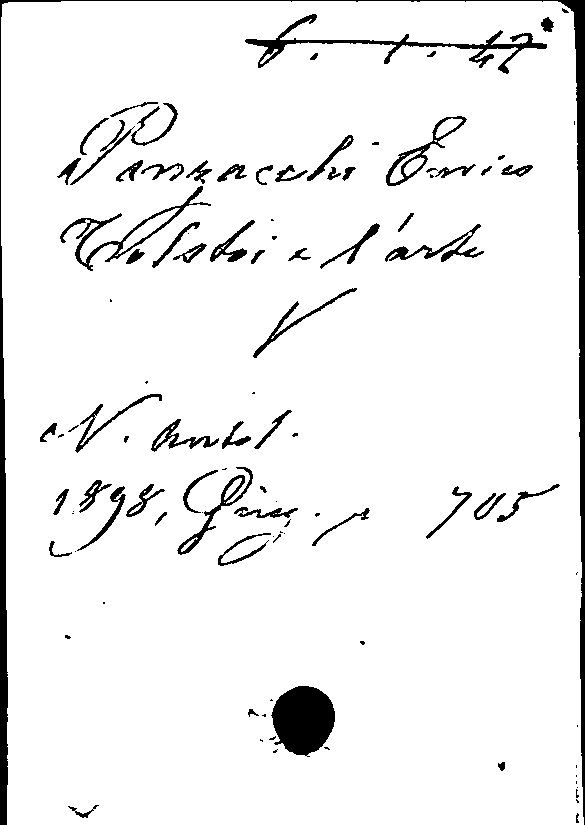 6. 1. 47
Panzacchi Enrico
Tolstoi e l'arte
V
N. Antol.
1898, Giug. p 705